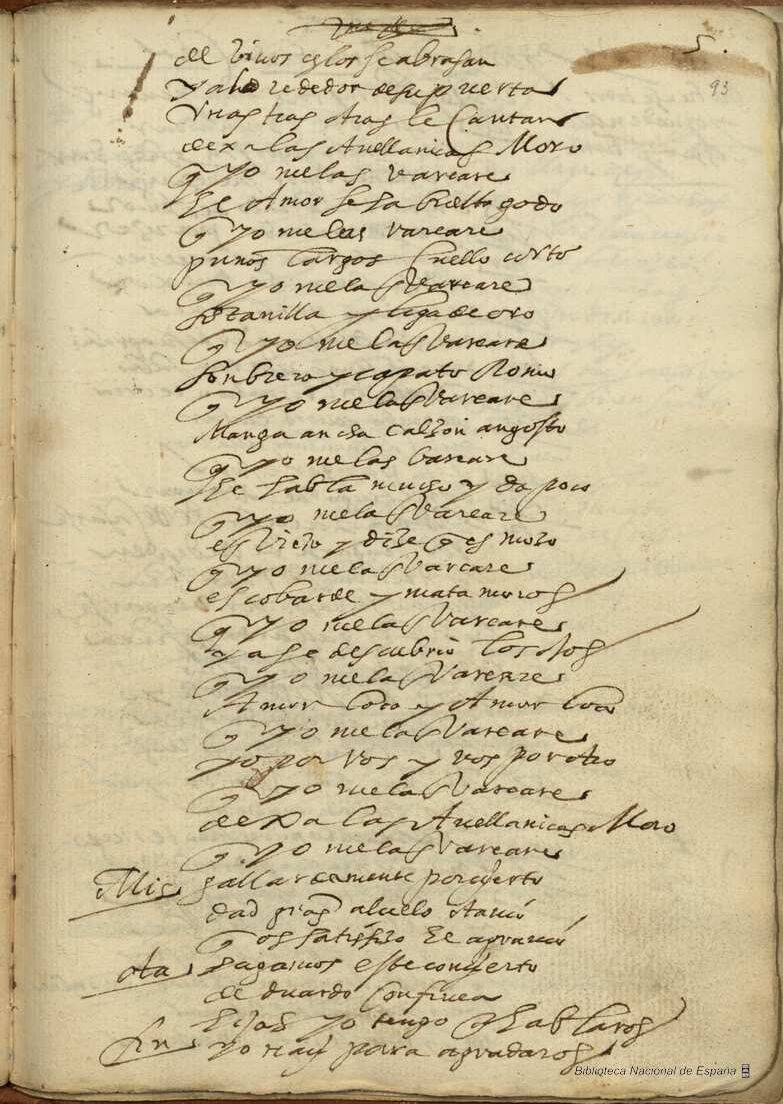 5.
93
de vivos çelos se abrasan
y al rrededor de su puerta
Unas tras otras le Cantan
dexa las Avellanicas Moro
q yo me las vareare
el Amor se ha buelto godo
q yo me las vareare
punos largos Cuello corto
q yo me las vareare
sotanilla y liga de oro
q yo me las vareare
sonbrero y çapato Romo
q yo me las vareare
Manga ancha calzon angosto
q yo me las vareare
El habla mucho y da poco
q yo me las vareare
es viejo y dize q es mozo
q yo me las vareare
es cobarde y mata moros
q yo me las vareare
ya se descubrio los ojos
q yo me las vareare
Amor loco y Amor loco
q yo me las vareare
yo por vos y vos por otro
q yo me las vareare
dexa las Avellanicas Moro
q yo me las vareare
gallardamente por çierto
dad al
q os satisfizo
ota hagamos este conçierto
de Eduardo Confinea
Hijas yo tengo q hablaros
Fin yo para agradaros
Biblioteca Nacional de España